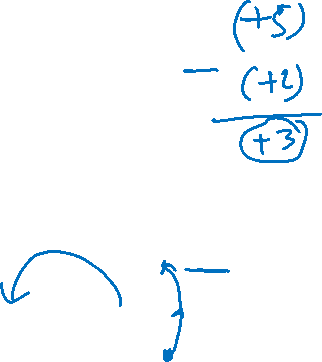 (+5)
− (+2)
+3
−